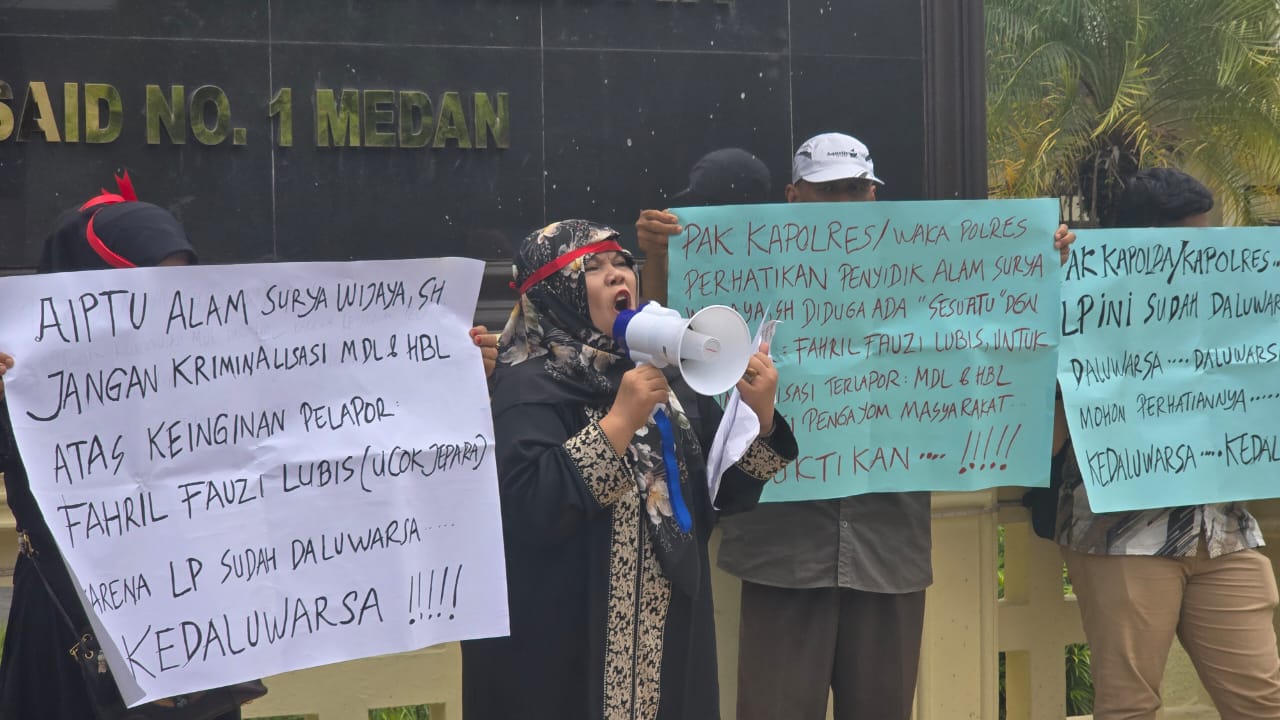 SAID NO. 1 MEDAN
AIPTU ALAM SURYA WIJAYA, SH
JANGAN KRIMINALISASI MDL & HBL
ATAS KEINGINAN PELAPOR:
FAHRIL FAUZI LUBIS (UCOK JEPARA)
KARENA LP SUDAH DALUWARSA.....
KEDALUWARSA !!!!!
PAK KAPOLRES/WAKA POLRES
PERHATIKAN PENYIDIK ALAM SURYA
SH DIDUGA ADA "SESUATU" DGN
: FAHRIL FAUZI LUBIS, UNTUK
TERLAPOR: MDL & HBL
PENGAYOM MASYARAKAT...
.... !!!!!
PAK KAPOLDA/KAPOLRES...
LP INI SUDAH
DALUWARSA....
MOHON PERHATIANNYA.....
KEDALUWARSA....